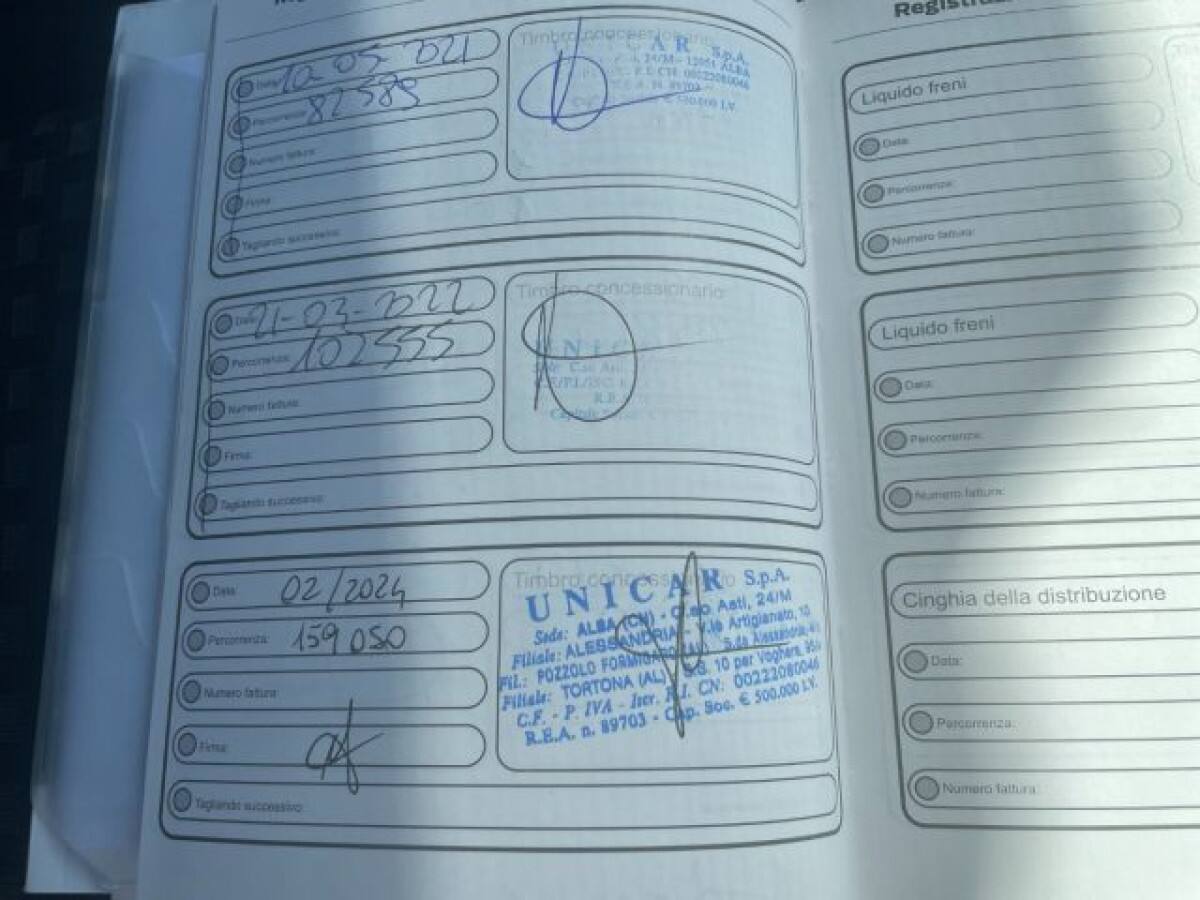 Timbro concessionario:
UNICAR S.p.A.
24/M - 12051 ALBA
R.I. CN: 00222080046
N. 89703
€ 500.000 I.V.
Data: 10-05-2021
Percorrenza: 82589
Numero fattura:
Firma:
Tagliando successivo:
Timbro concessionario:
UNIC
Data: 21-03-2022
Percorrenza: 102555
Numero fattura:
Firma:
Tagliando successivo:
Timbro concessionario
UNICAR S.p.A.
Sede: ALBA (CN) - C.so Asti, 24/M
Filiale: ALESSANDRIA - V.le Artigianato, 10
Fil.: POZZOLO FORMIGARO (AL) S.da Alessandria
Filiale: TORTONA (AL) - S.S. 10 per Voghera
C.F. - P. IVA - Iscr. R.I. CN: 00222080046
R.E.A. n. 89703 - Cap. Soc. € 500.000 I.V.
Data: 02/2024
Percorrenza: 159050
Numero fattura:
Firma:
Tagliando successivo:
Liquido freni
Data:
Percorrenza:
Numero fattura:
Liquido freni
Data:
Percorrenza:
Numero fattura:
Cinghia della distribuzione
Data:
Percorrenza:
Numero fattura: